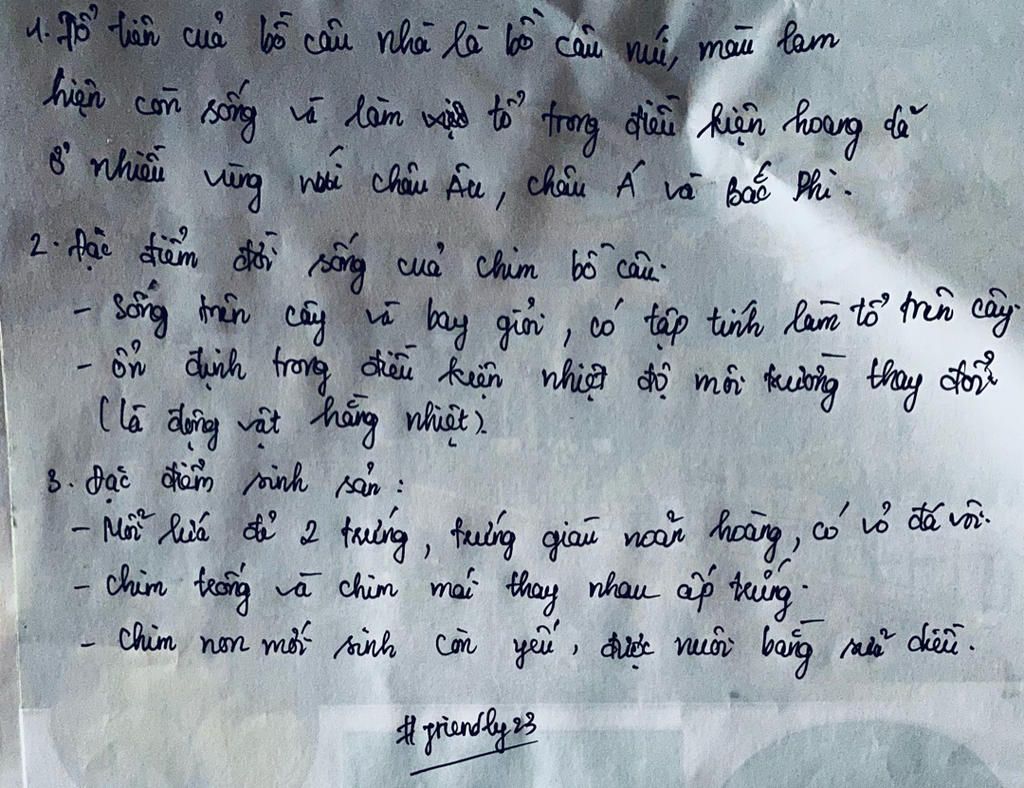 1. Tổ tiên của bồ câu nhà là bồ câu núi, màu lam
hiện còn sống và làm tổ trong điều kiện hoang dã
ở nhiều vùng núi châu Âu, châu Á và Bắc Phi.
2. Đặc điểm đời sống của chim bồ câu.
- Sống trên cây và bay giỏi, có tập tính làm tổ trên cây.
- ổn định trong điều kiện nhiệt độ môi trường thay đổi
(là động vật hằng nhiệt).
3. Đặc điểm sinh sản:
- Mỗi lứa đẻ 2 trứng, trứng giàu noãn hoàng, có vỏ đá vôi.
- Chim trống và chim mái thay nhau ấp trứng.
- Chim non mới sinh còn yếu, được nuôi bằng sữa diều.
#friendly23